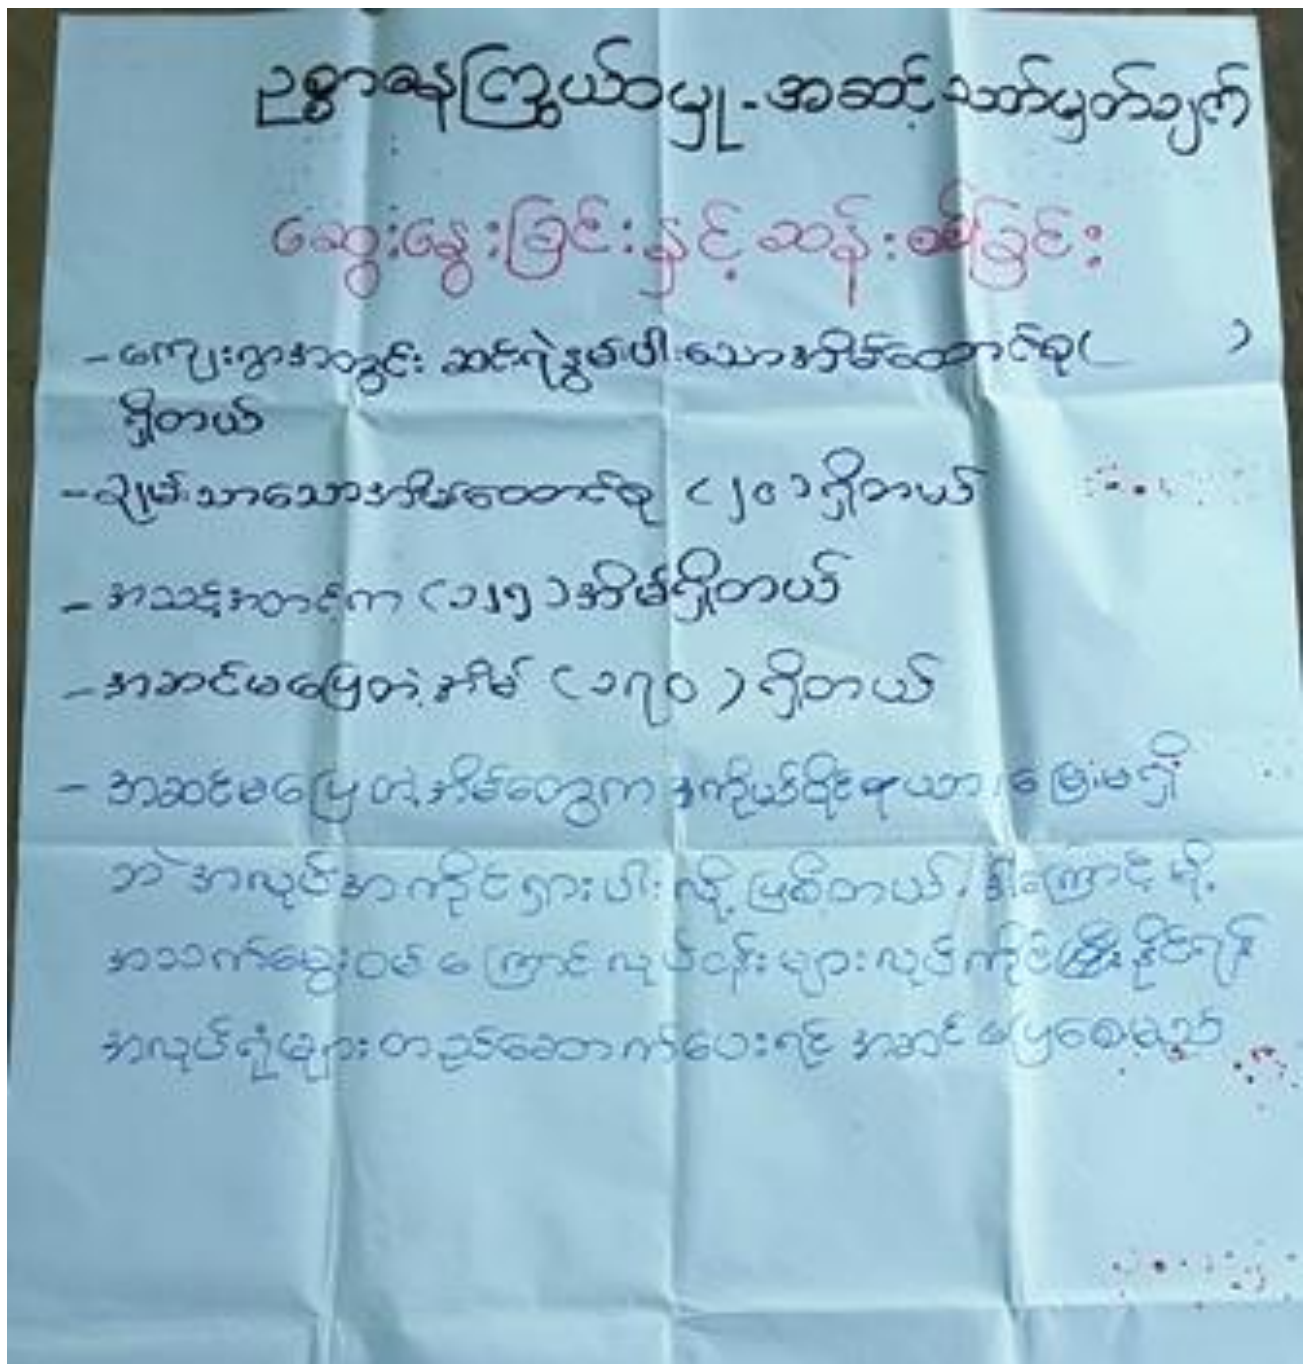 ဥစ္စာဓနကြွယ်ဝမှု - အဆင့်သတ်မှတ်ချက်
ဆွေးနွေးခြင်းနှင့် ဆန်းစစ်ခြင်း
- ကျေးရွာအတွင်း ဆင်းရဲနွမ်းပါးသောအိမ်ထောင်စု( )
ရှိတယ်
- ချမ်းသာသောအိမ်ထောင်စု (၂၀) ရှိတယ်
- အသင့်အတင့်က (၁၂၅) အိမ်ရှိတယ်
- အဆင်မပြေတဲ့အိမ် (၁၇၀) ရှိတယ်
- အဆင်မပြေတဲ့အိမ်တွေက ကိုယ်ပိုင်ရာယာ၊ မြေမရှိ
ဘဲ အလုပ်အကိုင်ရှားပါးလို့ ဖြစ်တယ်၊ ဒါကြောင့်မို့
အသက်မွေးဝမ်းကြောင်းလုပ်ငန်းများလုပ်ကိုင်ပြီးနိုင်ရန်
အလုပ်ရုံများတည်ဆောက်ပေးရင် အဆင်ပြေစေမည်